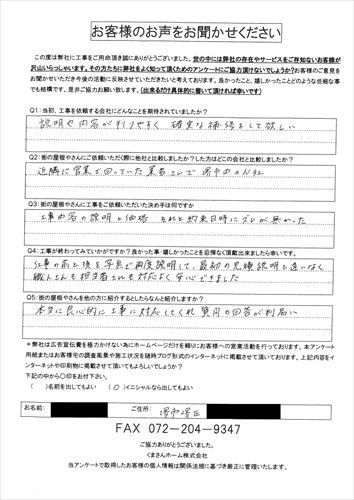 お客様のお声をお聞かせください
この度は弊社に工事をご用命頂き誠にありがとうございました。世の中には弊社の存在やサービスをご存知ないお客様が
沢山いらっしゃいます。その方たちに弊社をよく知って頂くためのアンケートにご協力頂けないでしょうか?お客様のご意見を
お聞かせいただき今後の活動に反映させていただきたいと考えております。良かったこと、嬉しかったことなどのような些細な事
でも結構です。是非ご協力お願い致します。(出来るだけ具体的に書いて頂ければ幸いです)
Q1:当初、工事を依頼する会社にどんなことを期待されていましたか?
説明や内容が判りやすく 確実な補修をして欲しい
Q2:街の屋根やさんにご依頼いただく際に他社と比較しましたか?した方はどこの会社と比較しましたか?
近隣に営業で回っていた業者さんで 堺市内のN社
Q3:街の屋根やさんにご依頼いただいた決め手は何ですか
工事内容の説明と価格 それと約束日時にズレが無かった
Q4:工事が終わってみていかがですか?良かった事・嬉しかったことを忌憚なく頂戴出来ましたら幸いです。
仕事の前と後を写真で再度説明して、最初の見積説明と違いなく
職人さんも担当者さんも対応よく安心できました
Q5:街の屋根やさんを他の方に紹介するとしたらなんと紹介しますか?
本当に良心的に工事に対応してくれ 質問の回答が判易い
*弊社は広告宣伝費を極力かけない為にホームページだけを頼りにお客様への営業活動を行っております。本アンケート
用紙またはお客様宅の調査風景や施工状況を随時ブログ形式のインターネットに掲載させて頂いております。上記内容をイ
ンターネットや印刷物に掲載させて頂いてもよろしいでしょうか?
下記の中から○印をお付下さい。
( )名前を出してもよい (○)イニシャルなら出してもよい
お名前: ご住所: 堺市堺区
FAX 072-204-9347
ご協力ありがとうございました。
くまさんホーム株式会社
当アンケートで取得したお客様の個人情報は関係法規に基づき厳正に管理いたします。